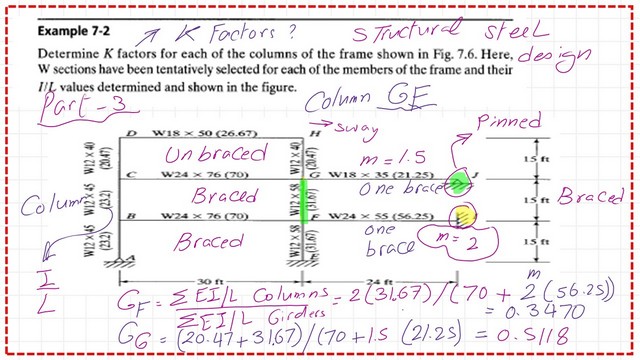 Example 7-2
↗ K Factors ?
structural steel
Determine K factors for each of the columns of the frame shown in Fig. 7.6. Here,
design
W sections have been tentatively selected for each of the members of the frame and their
I/L values determined and shown in the figure.
Part-3
Column GF
→ sway
Pinned
D W18 × 50 (26.67) H
W12 × 40 (20.47)
Unbraced
W12 × 40 (20.47)
m = 1.5
15 ft
C W24 × 76 (70) G W18 × 35 (21.25) J
Column
W12 × 45 (23.2)
Braced
W12 × 58 (31.67)
one brace
15 ft
Braced
B W24 × 76 (70) F W24 × 55 (56.25)
W12 × 45 (23.2)
Braced
W12 × 58 (31.67)
one brace
m = 2
15 ft
A
30 ft
24 ft
I
L
m
G_F = Σ EI/L Columns / Σ EI/L Girders = 2(31.67)/(70 + 2(56.25))
= 0.3470
G_G = (20.47+31.67)/(70+1.5 (21.25) = 0.5118